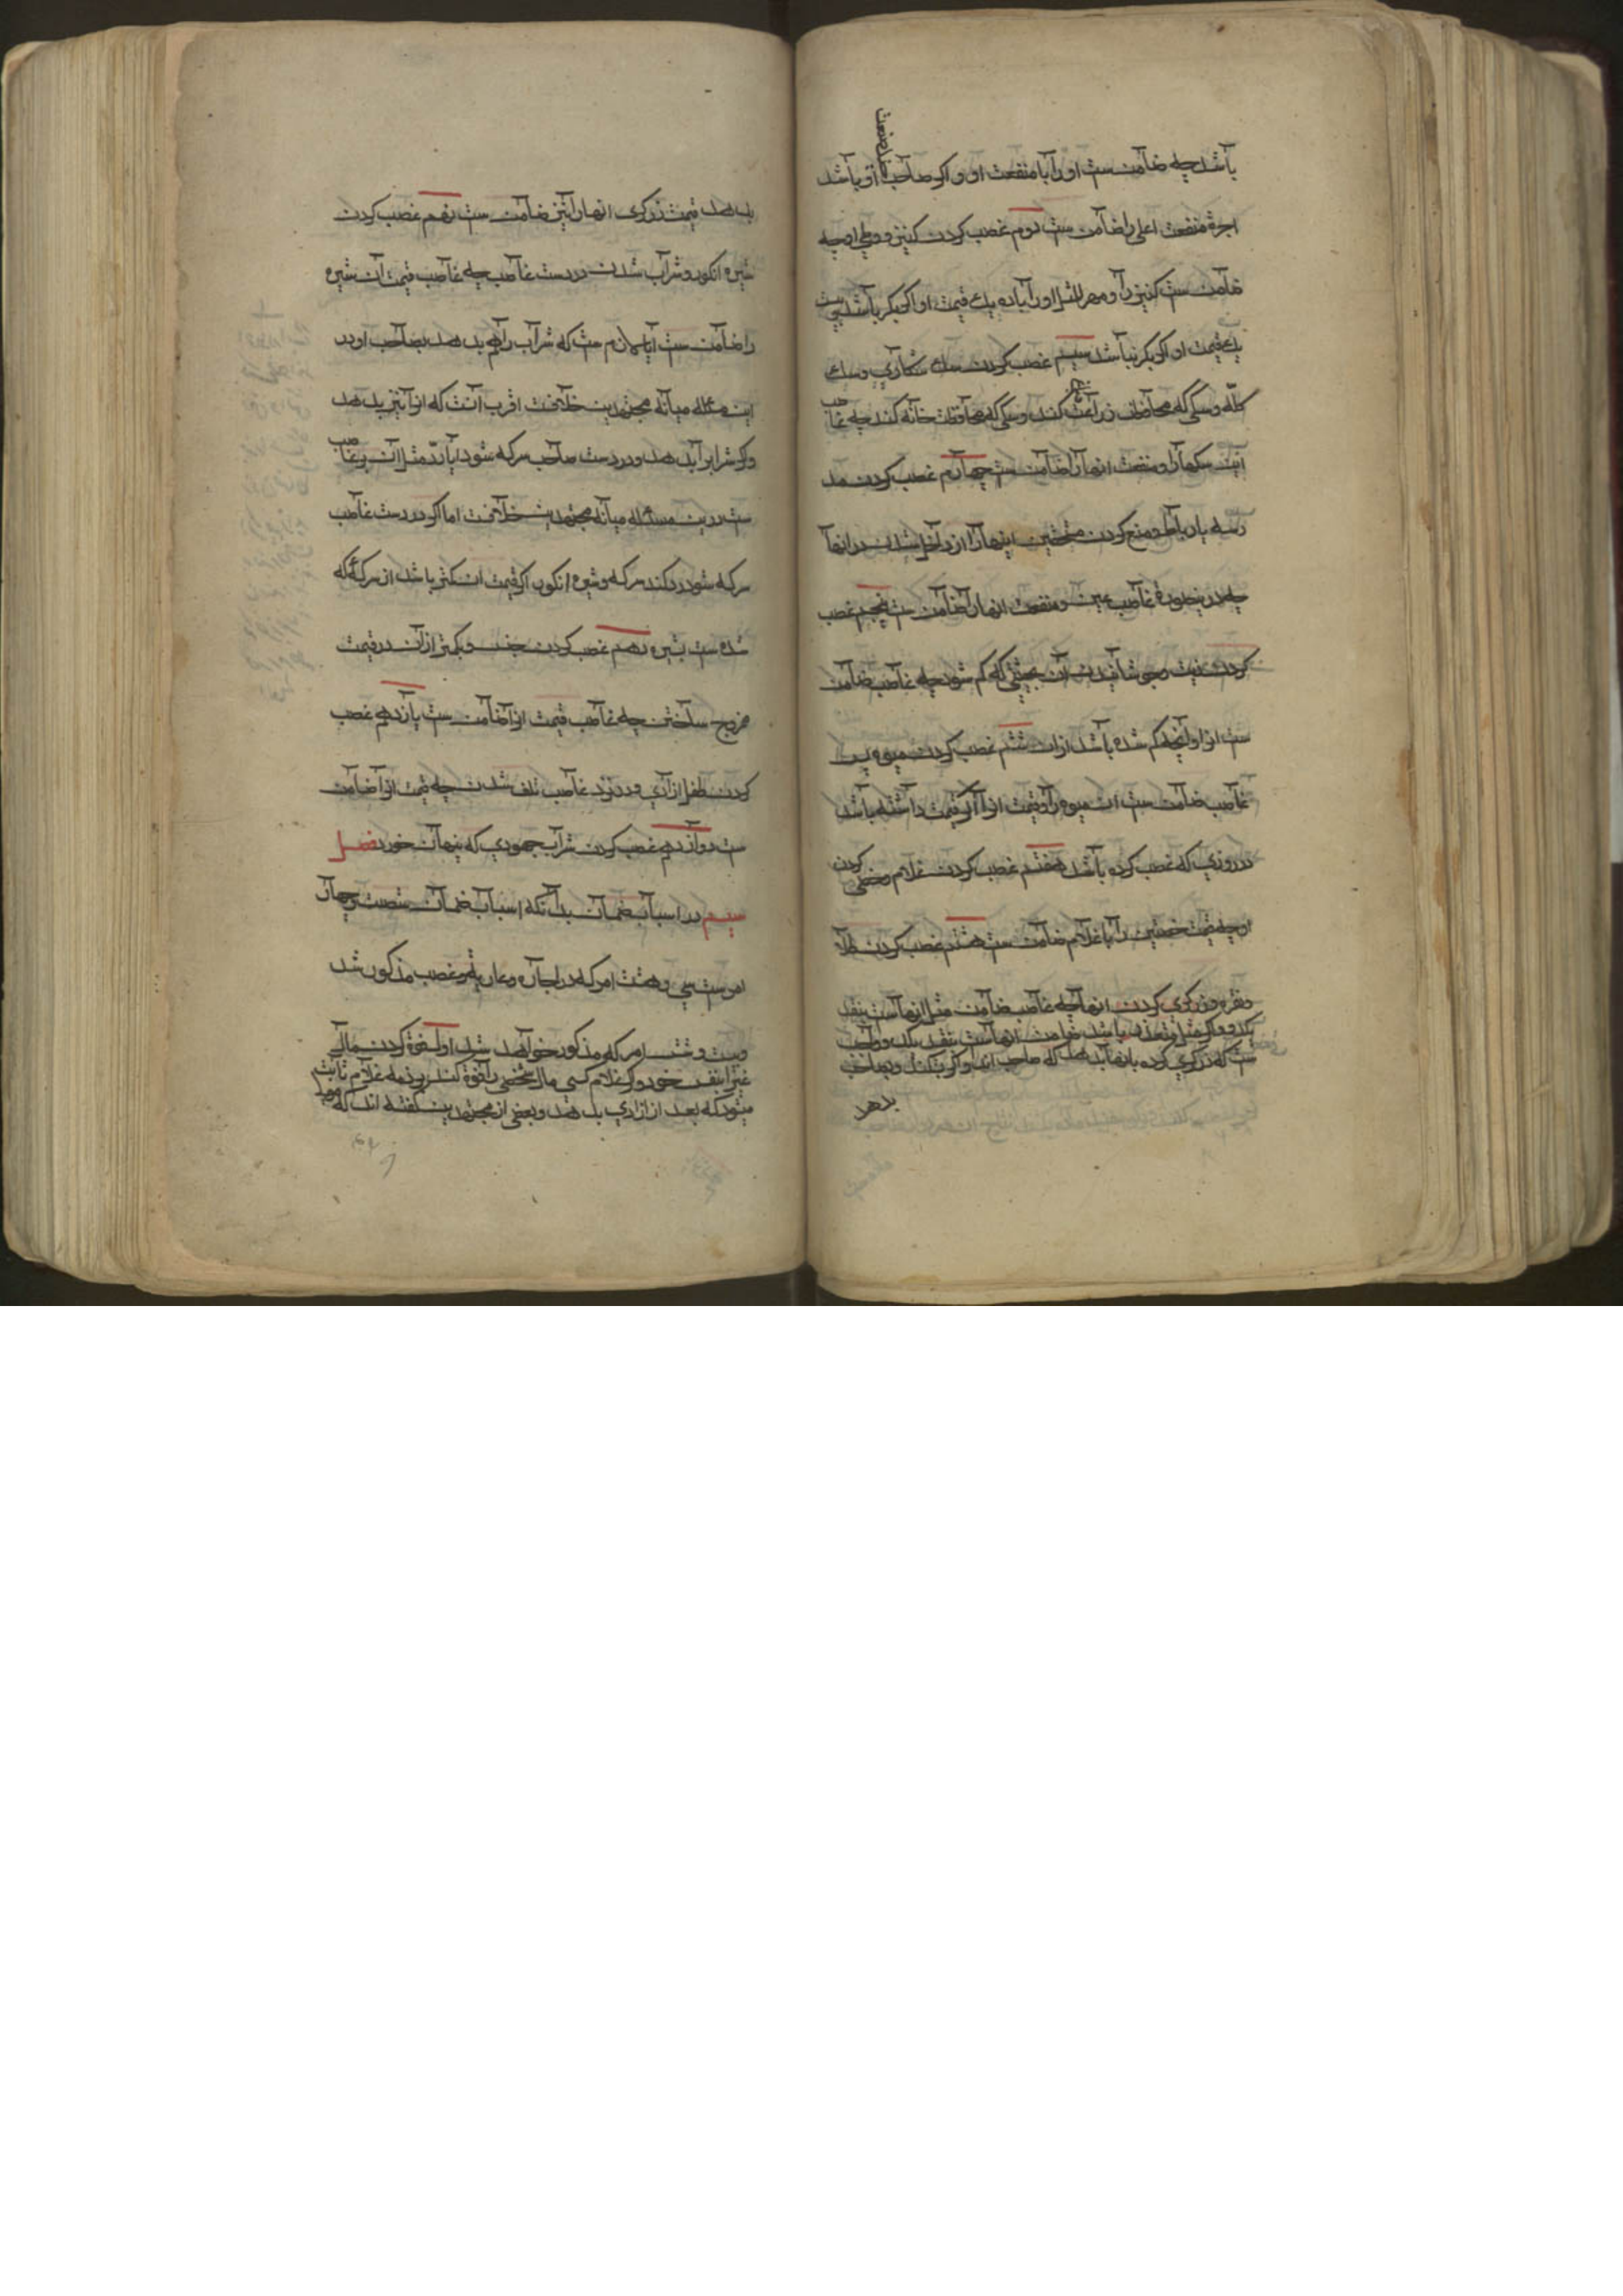 باشد چه ضامن ست او را با منفعت او و اکر صاحب او باشد
اجرة منفعت اعلی را ضامن ست دوم غصب کردن کنیز و وطی او چه
ضامن ست کنیز را و مهر المثل او را یا ده یك قیمت او اکر بکر باشد بیست
یك قیمت او اکر بکر نباشد سیم غصب کردن سك شکاری و سك
کلّه و سکی که محافظت زراعت کند و سکی که محافظت خانه کند چه غاصب
این سکها را و منفعت انها را ضامن ست چهارم غصب کردن مد
رسه یا رباط و منع کردن مستحقین اینها را از داخل شدن در انها
چه درینصورة غاصب عین و منفعت انها را ضامن ست پنجم غصب
کردن و جوشانیدن آن بحیثیتی که کم شود چه غاصب ضامن
ست انرا و آنچه کم شده باشد از ان ششم غصب کردن میوه
غاصب ضامن ست ان میوه را و قیمت انرا اکر قیمت داشته باشد
در روزی که غصب کرده باشد هفتم غصب کردن غلام و خصی کردن
او چه قیمت خصیتین را با غلام ضامن ست هشتم غصب کردن طلا
و نقره و زرکری کردن انها چه غاصب ضامن مثل انها ست بنقد
بلد و اکر مثل متعذر باشد ضامن انها ست بنقد بلد و واجب
ست که زرکری کرده بانها بدهد که صاحب اند و اکر بشکند و بصاحب
بدهد
بدهد قیمت زرکری انها را نیز ضامن ست نهم غصب کردن
شیره انکور و شراب شدن در دست غاصب چه غاصب قیمت آن شیره
را ضامن ست آیا لازم ست که شراب را هم بدهد بصاحب او در
این مسئله میانه مجتهدین خلافست اقرب آنست که انرا نیز بدهد
و اکر شراب را بدهد و در دست صاحب سرکه شود ایا ردّ مثل آن بر غاصب
ست درین مسئله میانه مجتهدین خلافست اما اکر در دست غاصب
سرکه شود رد کند سرکه و شیره انکور اکر قیمت ان کمتر باشد از سرکهٔ که
شده ست بشیره دهم غصب کردن جنسی و بکمتر از آن در قیمت
مزوج ساختن چه غاصب قیمت انرا ضامن ست یازدهم غصب
کردن طفل ازادی و در نزد غاصب تلف شدن چه قیمت انرا ضامن
ست دوازدهم غصب کردن شراب جهودی که پنهان خورد فصل
سیم در اسباب ضمان بدآنکه اسباب ضمان شصت و چهار
امر ست سی و هشت امر که در اجاره و عاریه و غصب مذکور شد
و بیست و شش امر که مذکور خواهد شد اول فوة کردن مال
غیر را بنفس خود و اکر غلام کسی مال شخصی را فوة کند بر ذمه غلام ثابت
میشود که بعد از ازادی بدهد و بعضی از مجتهدین کفته اند که مولا